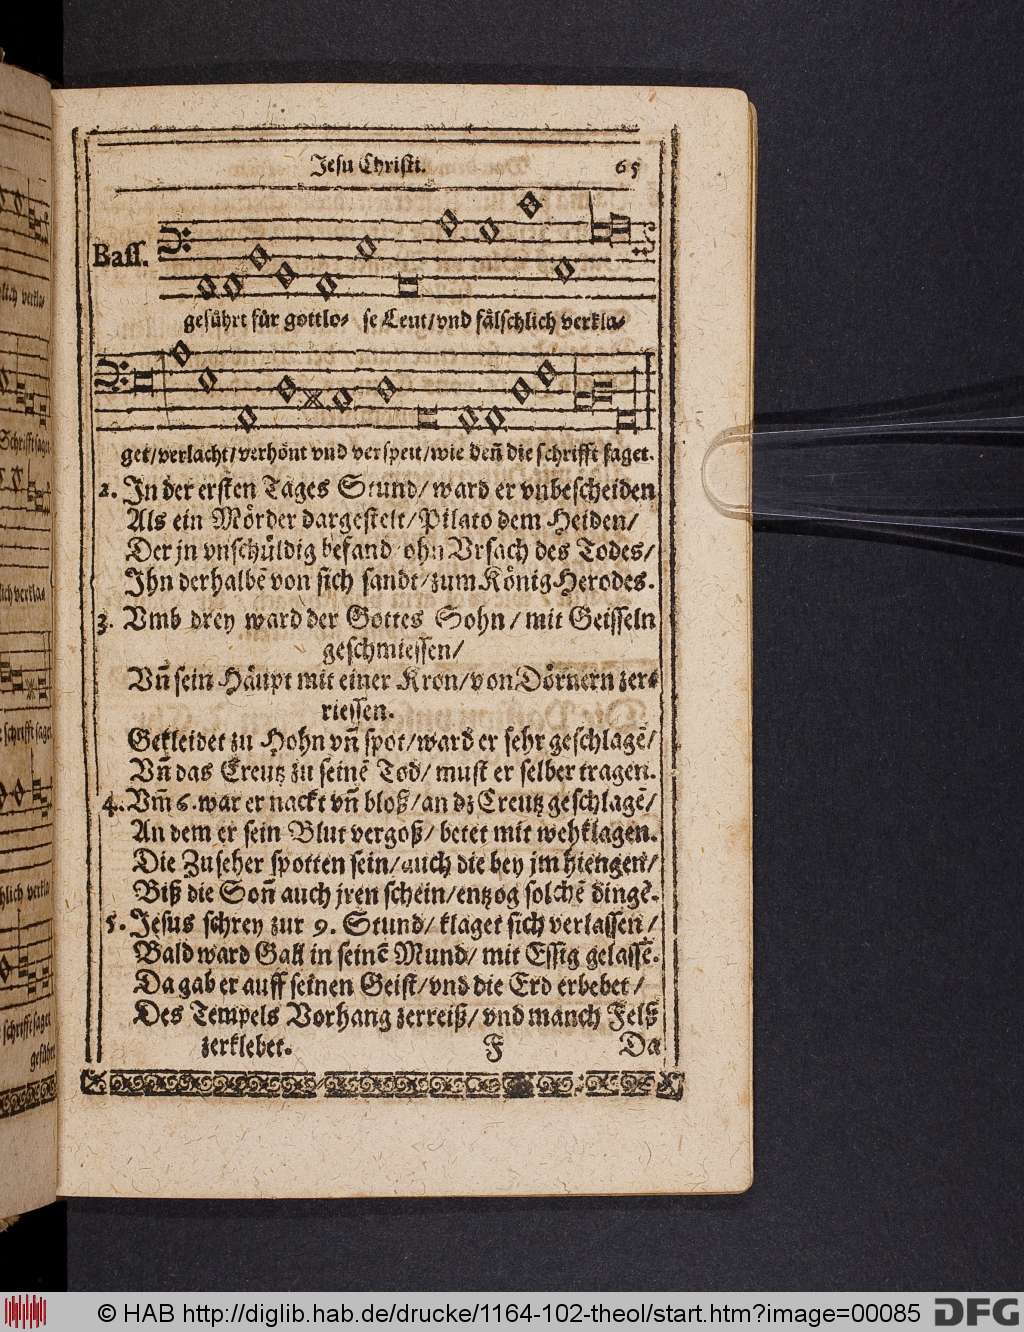 Jesu Christi. 65
Bass.
geführt für gottlo- se Leut/vnd fälschlich verkla-
get/verlacht/verhönt vnd verspeit/wie deñ die schrifft saget.
2. In der ersten Tages Stund/ward er vnbescheiden
Als ein Mörder dargestelt/Pilato dem Heiden/
Der jn vnschüldig befand/ohn Vrsach des Todes/
Ihn derhalbē von sich sandt/zum König Herodes.
3. Vmb drey ward der Gottes Sohn/mit Geisseln
geschmiessen/
Vñ sein Häupt mit einer Kron/von Dörnern zer-
riessen.
Gekleidet zu Hohn vñ spot/ward er sehr geschlagē/
Vñ das Creutz zu seinē Tod/must er selber tragen.
4. Vm̄ 6. war er nackt vñ bloß/an dz Creutz geschlagē/
An dem er sein Blut vergoß/betet mit wehklagen.
Die Zuseher spotten sein/auch die bey jm hiengen/
Biß die Soñ auch jren schein/entzog solchē dingē.
5. Jesus schrey zur 9. Stund/klaget sich verlassen/
Bald ward Gall in seinē Mund/mit Essig gelassē.
Da gab er auff seinen Geist/vnd die Erd erbebet/
Des Tempels Vorhang zerreiß/vnd manch Felß
zerklebet. F Da
lich verkla-
Schrifft saget
lich verkla-
e schrifft saget
hlich verkla
e schrifft saget
geführt
© HAB http://diglib.hab.de/drucke/1164-102-theol/start.htm?image=00085 DFG